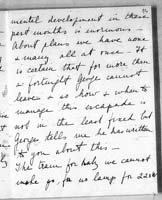 mental development in these
past months is enormous –
About plans we have none
& many all at once – It
is certain that for more than
a fortnight George cannot
leave & so how & when to
manage this escapade is
not in the least fixed but
George tells me he has written
to you about this –
The train for Italy we cannot
make go, for no lamp for 220